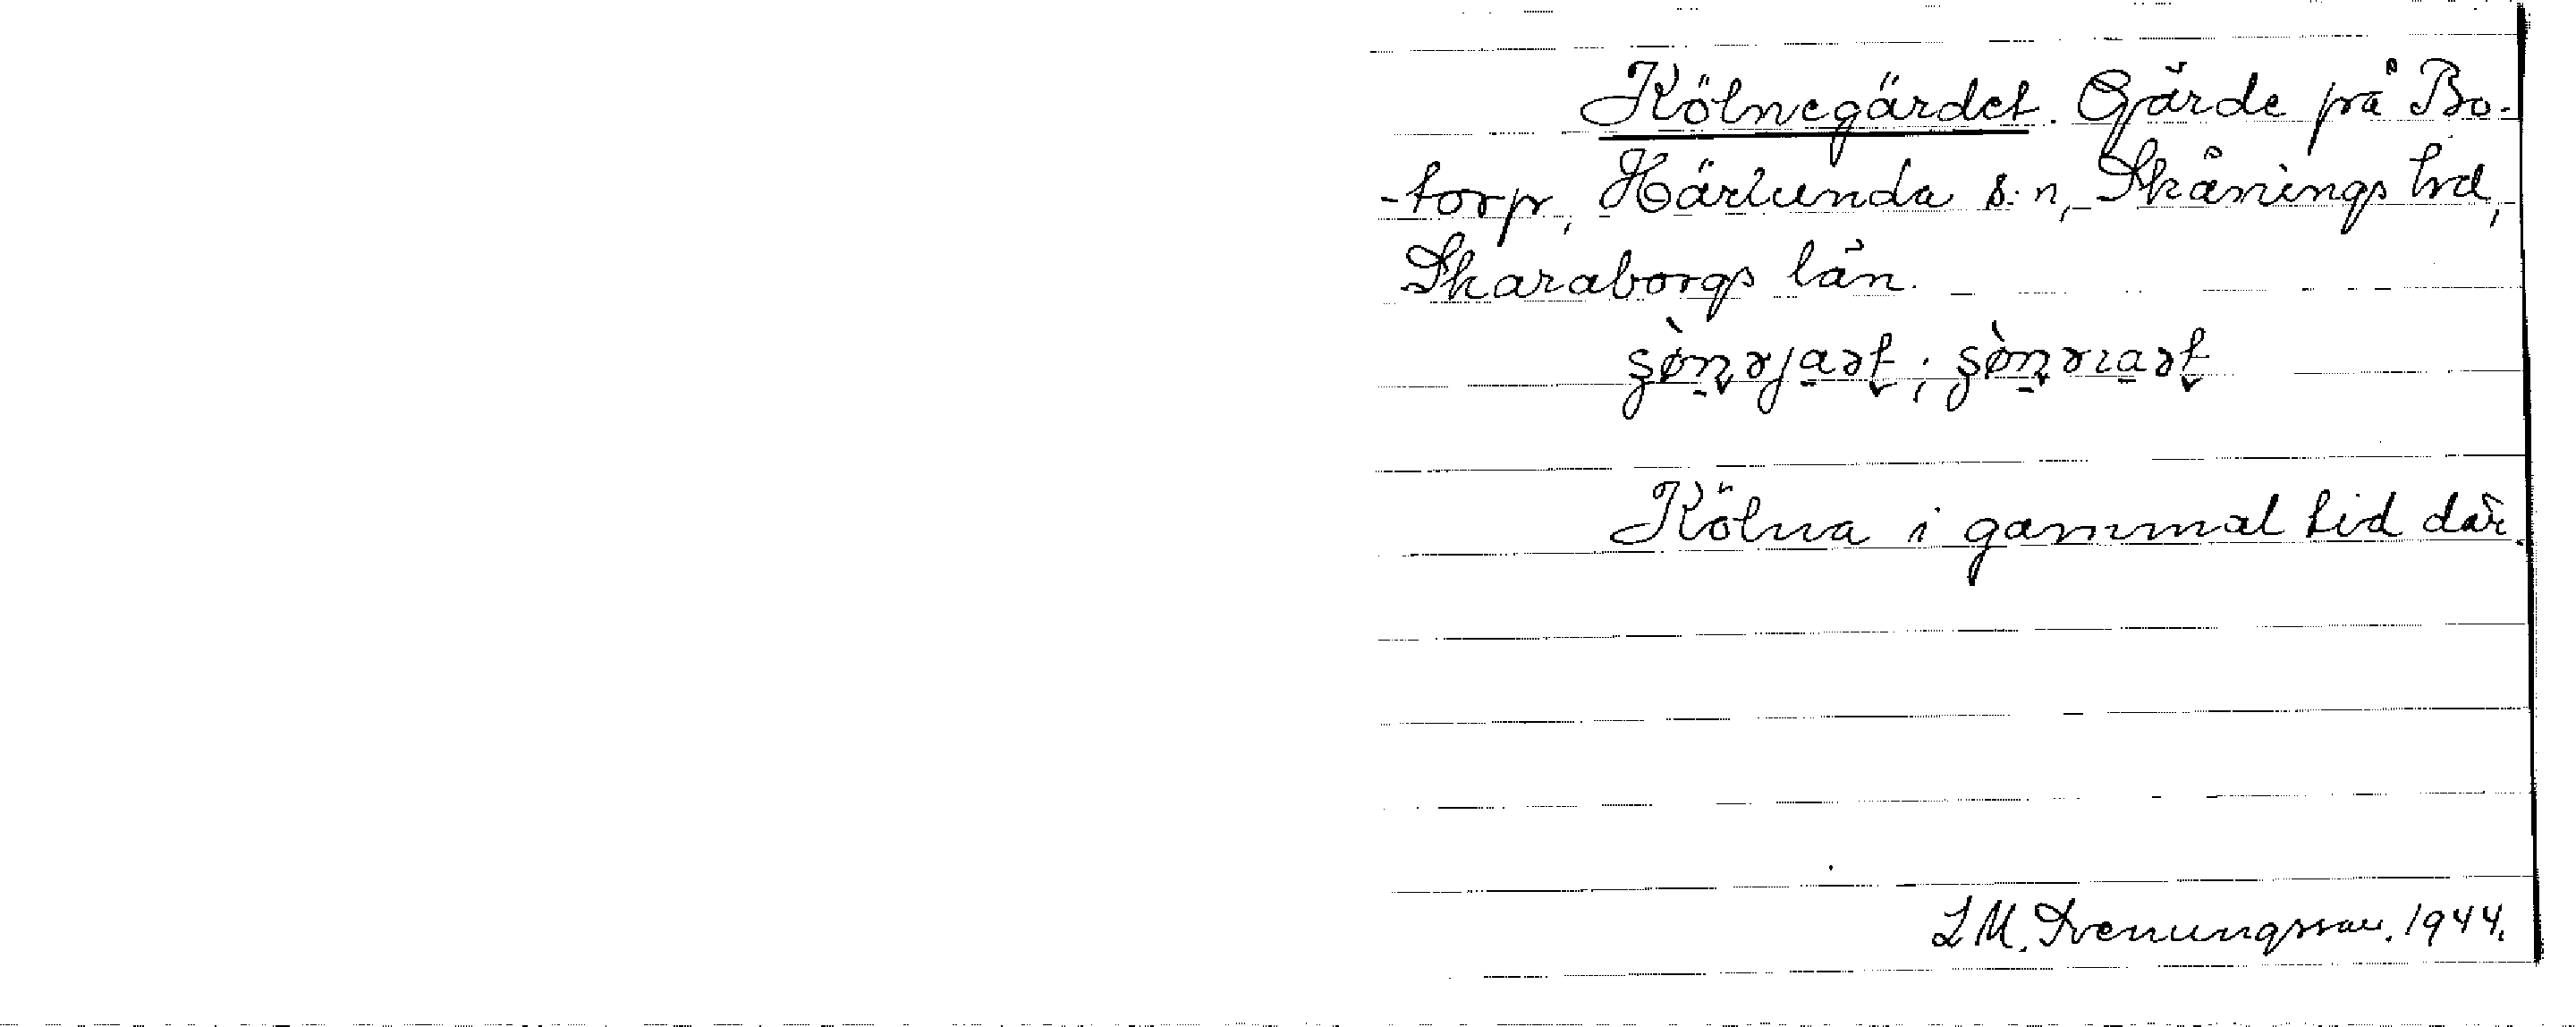 Kölnegärdet. Gärde på Bo-
-torp, Härlunda s:n, Skånings hd,
Skaraborgs län.
Kölna i gammal tid där.
L M. Svenungsson. 1944.